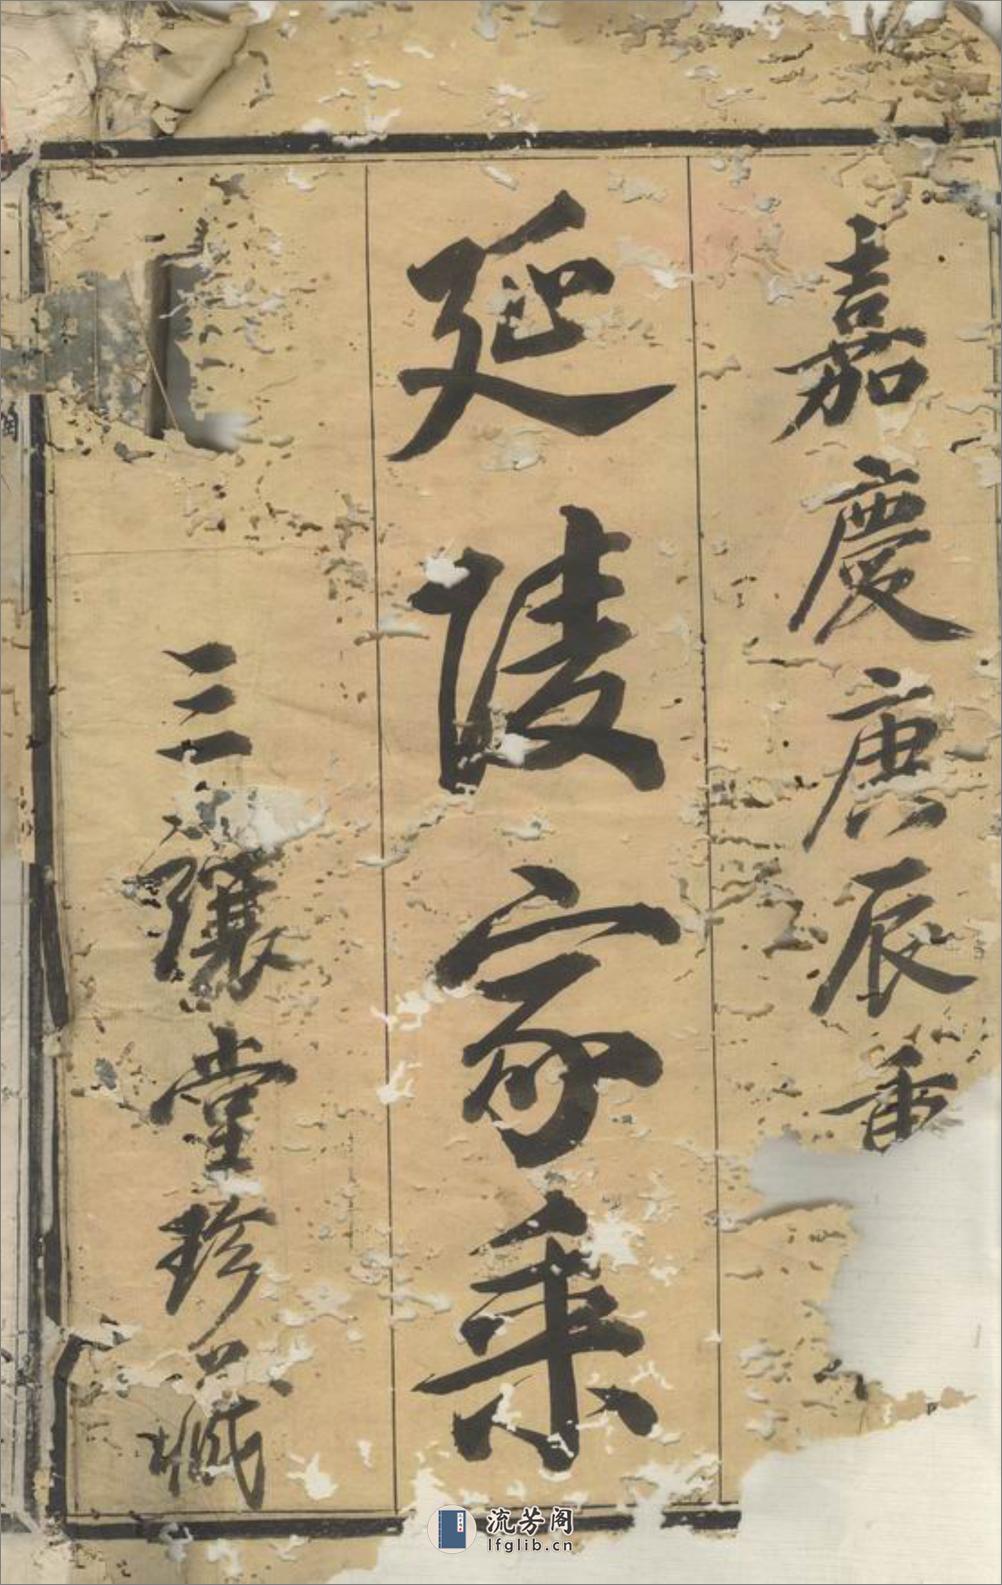 嘉慶庚辰重
延陵家乘
三讓堂珍藏
流芳阁
lfglib.cn